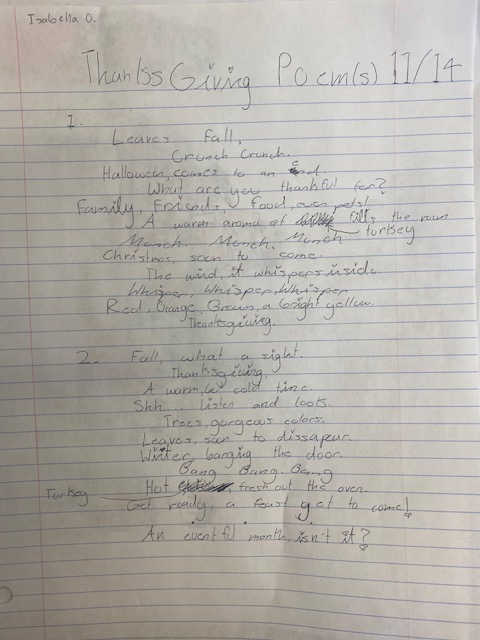 Isabella O.
ThanksGiving Poem(s) 11/14
1.
Leaves fall,
Crunch Crunch.
Halloween, comes to an end.
What are you thankful for?
Family, Friends, Food, even pets!
A warm aroma of turkey fills the room
Munch. Munch. Munch
Christmas, soon to come.
The wind, it whispers inside.
Whisper, Whisper, Whisper
Red, Orange, Brown, a bright yellow.
Thanksgiving.
2. Fall, what a sight.
Thanksgiving,
A warm, but cold time.
Shh... listen and look.
Trees, gorgeous colors.
Leaves, soon to dissapear.
Winter, barging the door.
Bang Bang Bang
Hot Turkey, fresh out the oven.
Get ready, a feast get to come!
An eventful month, isn't it?